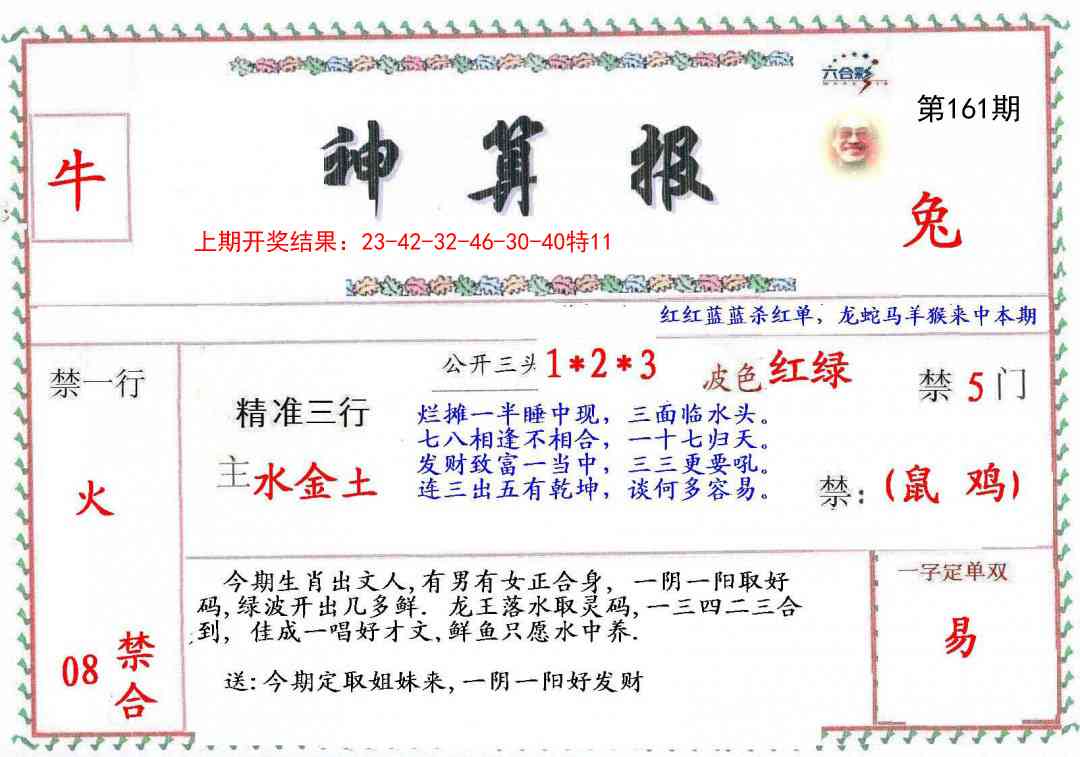 六合彩
第161期
牛
神算报
兔
上期开奖结果：23-42-32-46-30-40特11
红红蓝蓝杀红单，龙蛇马羊猴来中本期
禁一行
公开三头 1*2*3
波色红绿
禁5门
精准三行
主水金土
烂摊一半睡中现，三面临水头。
七八相逢不相合，一十七归天。
发财致富一当中，三三更要吼。
连三出五有乾坤，谈何多容易。
火
禁：(鼠 鸡)
今期生肖出文人,有男有女正合身，一阴一阳取好
码,绿波开出几多鲜．龙王落水取灵码,一三四二三合
到，佳成一唱好才文,鲜鱼只愿水中养.
送:今期定取姐妹来,一阴一阳好发财
一字定单双
易
08禁合